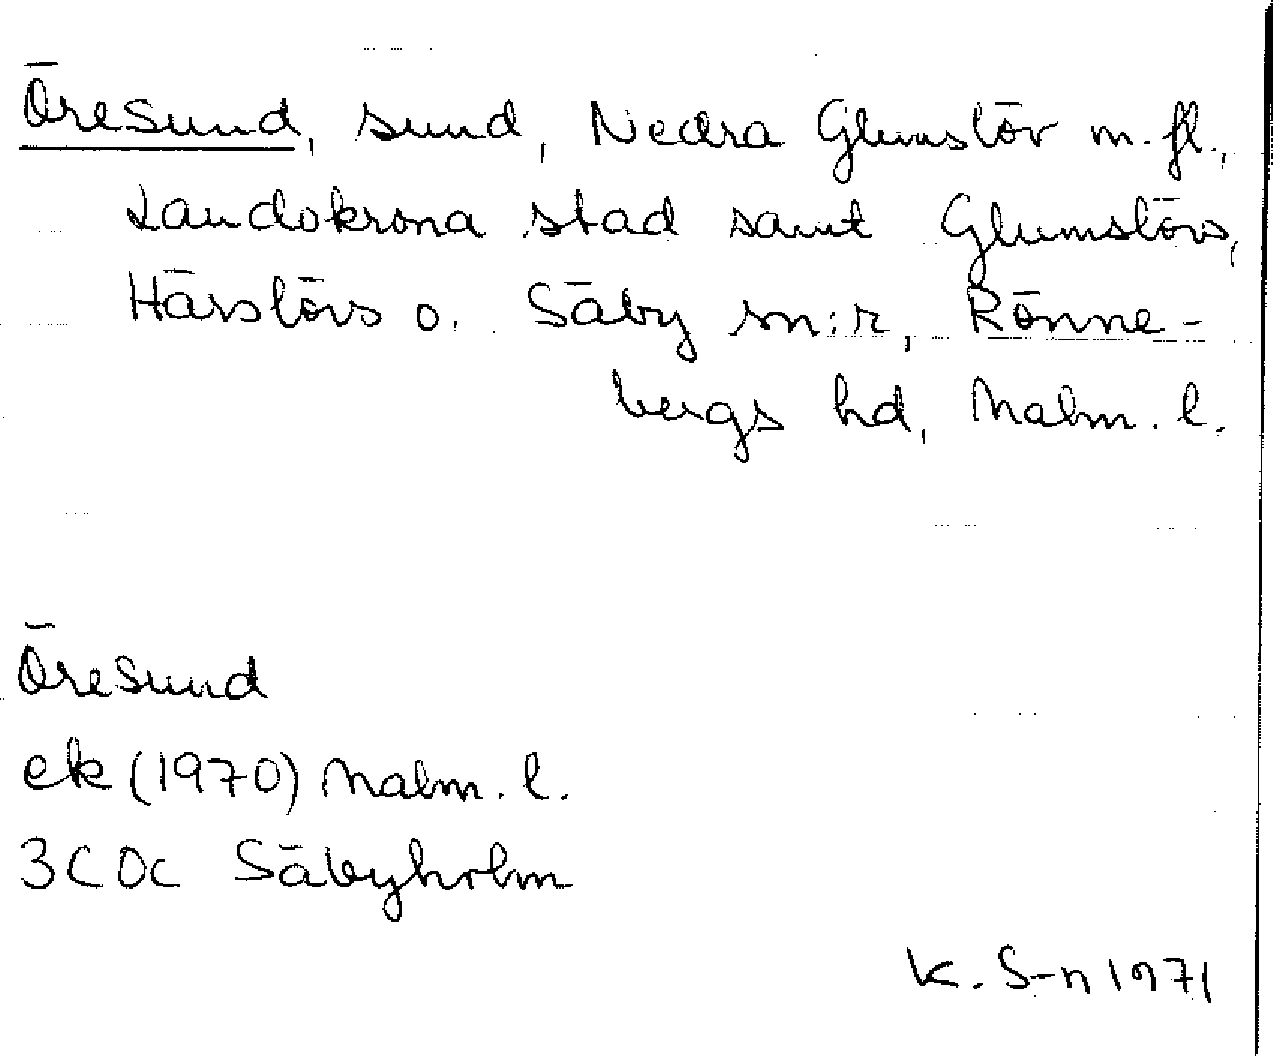 Öresund, sund, Nedra Glumslöv m. fl.,
Landskrona stad samt Glumslövs,
Härslövs o. Säby sn:r, Rönne-
bergs hd, Malm. l.
Öresund
ek (1970) Malm. l.
3C 0c Säbyholm
K. S-n 1971